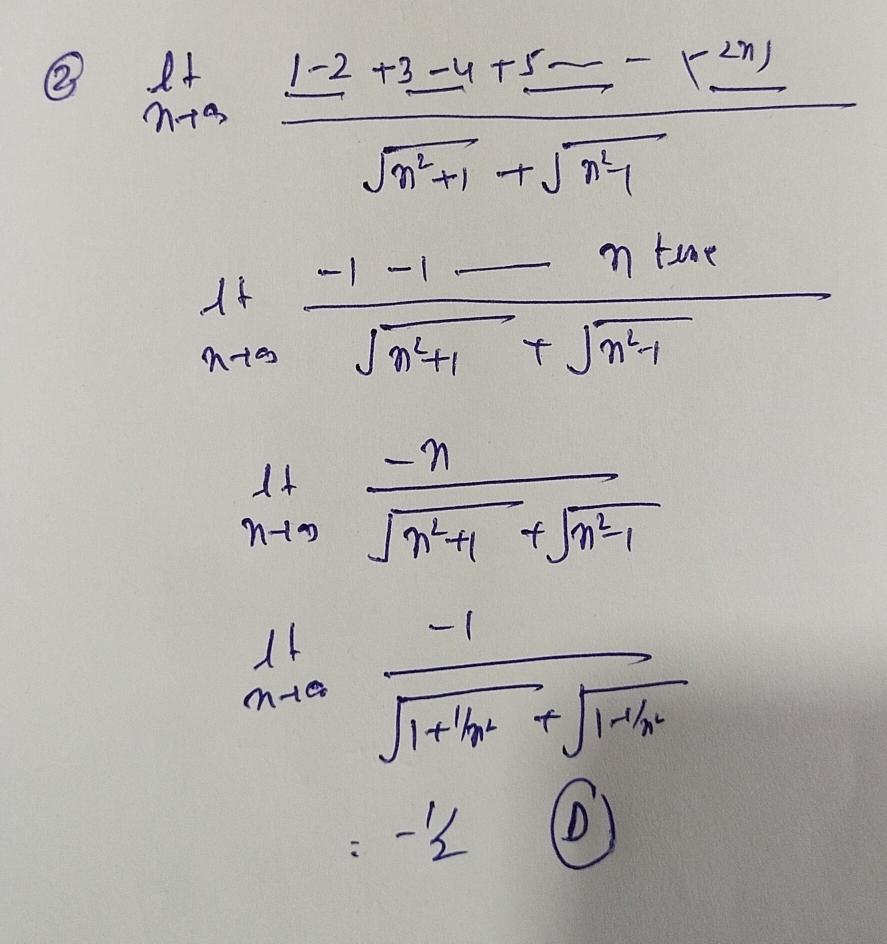 ② lt n→∞ (1-2+3-4+5 — - (-2n)) / (√(n²+1) + √(n²-1))
lt n→∞ (-1 -1 — n time) / (√(n²+1) + √(n²-1))
lt n→∞ -n / (√(n²+1) + √(n²-1))
lt n→∞ -1 / (√(1+1/n²) + √(1-1/n²))
= -1/2 Ⓓ